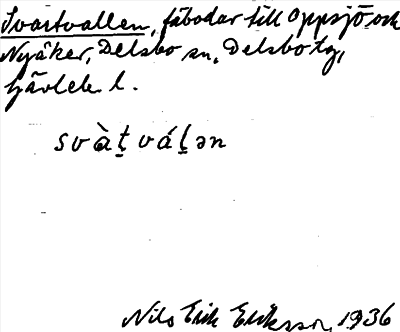 Svartvallen, fäbodar till Oppsjö och
Nyåker, Delsbo sn, Delsbo tg,
Gävleb l.
svàṯváḻən
Nils Erik Eriksson, 1936